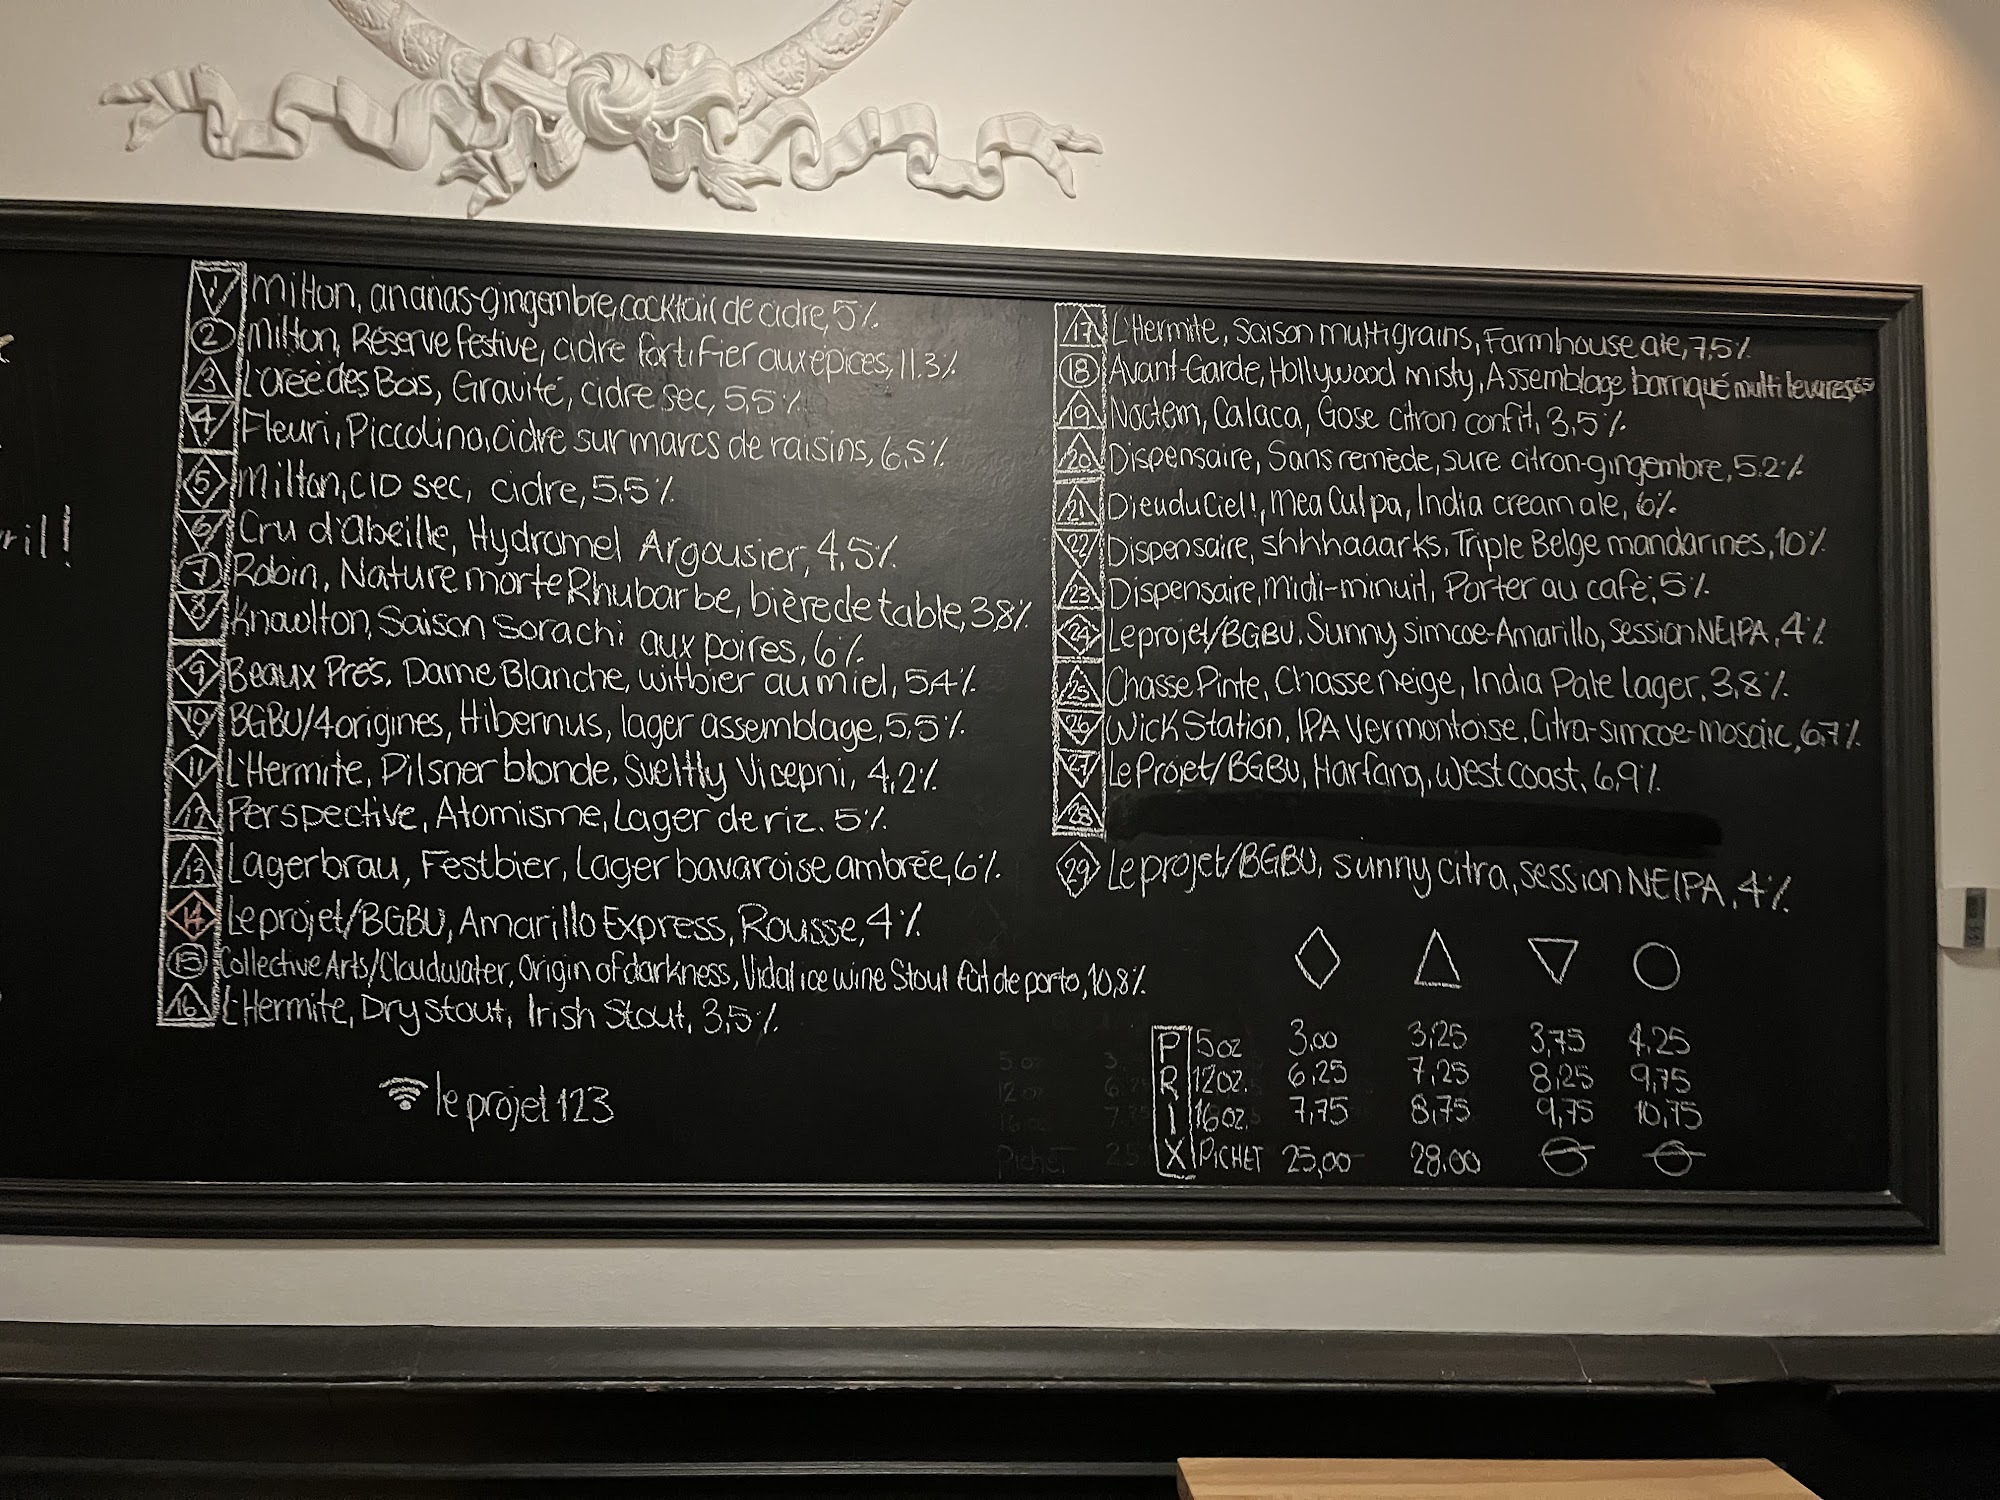 ril!
1 Milton, ananas-gingembre, cocktail de cidre, 5%
2 Milton, Réserve festive, cidre fortifier aux épices, 11.3%
3 L'orée des Bois, Gravité, cidre sec, 5,5%
4 Fleuri, Piccolino, cidre sur marcs de raisins, 6,5%
5 Milton, CID sec, cidre, 5,5%
6 Cru d'abeille, Hydromel Argousier, 4,5%
7 Robin, Nature morte Rhubarbe, bière de table, 3,8%
8 Knowlton, Saison Sorachi aux poires, 6%
9 Beaux Prés, Dame Blanche, witbier au miel, 5,4%
10 BGBU/4origines, Hibernus, lager assemblage, 5,5%
11 L'Hermite, Pilsner blonde, Sveltly Vicepni, 4,2%
12 Perspective, Atomisme, Lager de riz. 5%
13 Lagerbrau, Festbier, Lager bavaroise ambrée, 6%
14 Le projet/BGBU, Amarillo Express, Rousse, 4%
15 Collective Arts/Cloudwater, Origin of darkness, Vidal ice wine Stout fût de porto, 10,8%
16 L'Hermite, Dry Stout, Irish Stout, 3,5%
le projet 123
17 L'Hermite, Saison multigrains, Farmhouse ale, 7,5%
18 Avant-Garde, Hollywood misty, Assemblage barriqué multi levures,
19 Noctem, Calaca, Gose citron confit, 3,5%
20 Dispensaire, Sans remède, sure citron-gingembre, 5.2%
21 Dieu du Ciel!, Mea Culpa, India cream ale, 6%
22 Dispensaire, shhhaaarks, Triple Belge mandarines, 10%
23 Dispensaire, midi-minuit, Porter au café, 5%
24 Le projet/BGBU, Sunny simcoe-Amarillo, session NEIPA, 4%
25 Chasse Pinte, Chasse neige, India Pale lager, 3,8%
26 Wick Station, IPA Vermontoise, Citra-simcoe-mosaic, 6,7%
27 Le Projet/BGBU, Harfang, west coast, 6,9%
28
29 Le projet/BGBU, sunny citra, session NEIPA, 4%
PRIX
5oz 3,00 3,25 3,75 4,25
12oz. 6,25 7,25 8,25 9,75
16oz. 7,75 8,75 9,75 10,75
PICHET 25,00 28.00